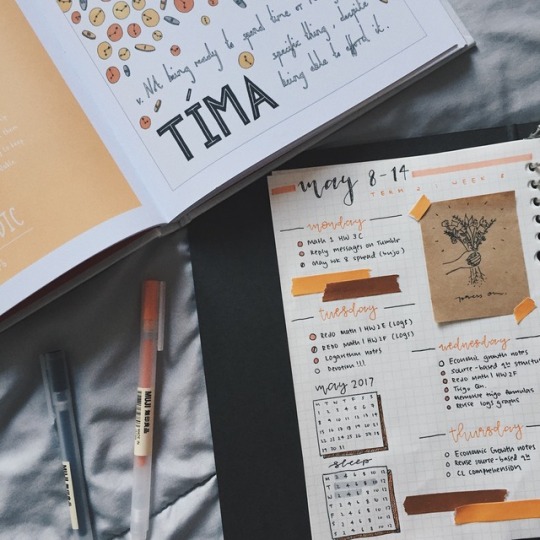 v. NA being ready to spend time or
specific thing, despite
being able to afford it.
TIMA
DIC
may 8-14
TERM 2 | WEEK 8
monday
Math 1 HW 3C
Reply messages on Tumblr
May wk 8 spread (bujo)
tuesday
Redo Math 1 HW 2E (Logs)
Redo Math 1 HW 2F (Logs)
Logarithm notes
Devotion!!!
may 2017
sleep
press on
wednesday
Economic growth notes
source-based qn structure
Redo Math 1 HW 2F
Trigo Qn.
Memorise trigo formulas
Revise logs graphs
thursday
Economic Growth notes
Revise source-based qn
CL comprehension
MUJI 無印良品